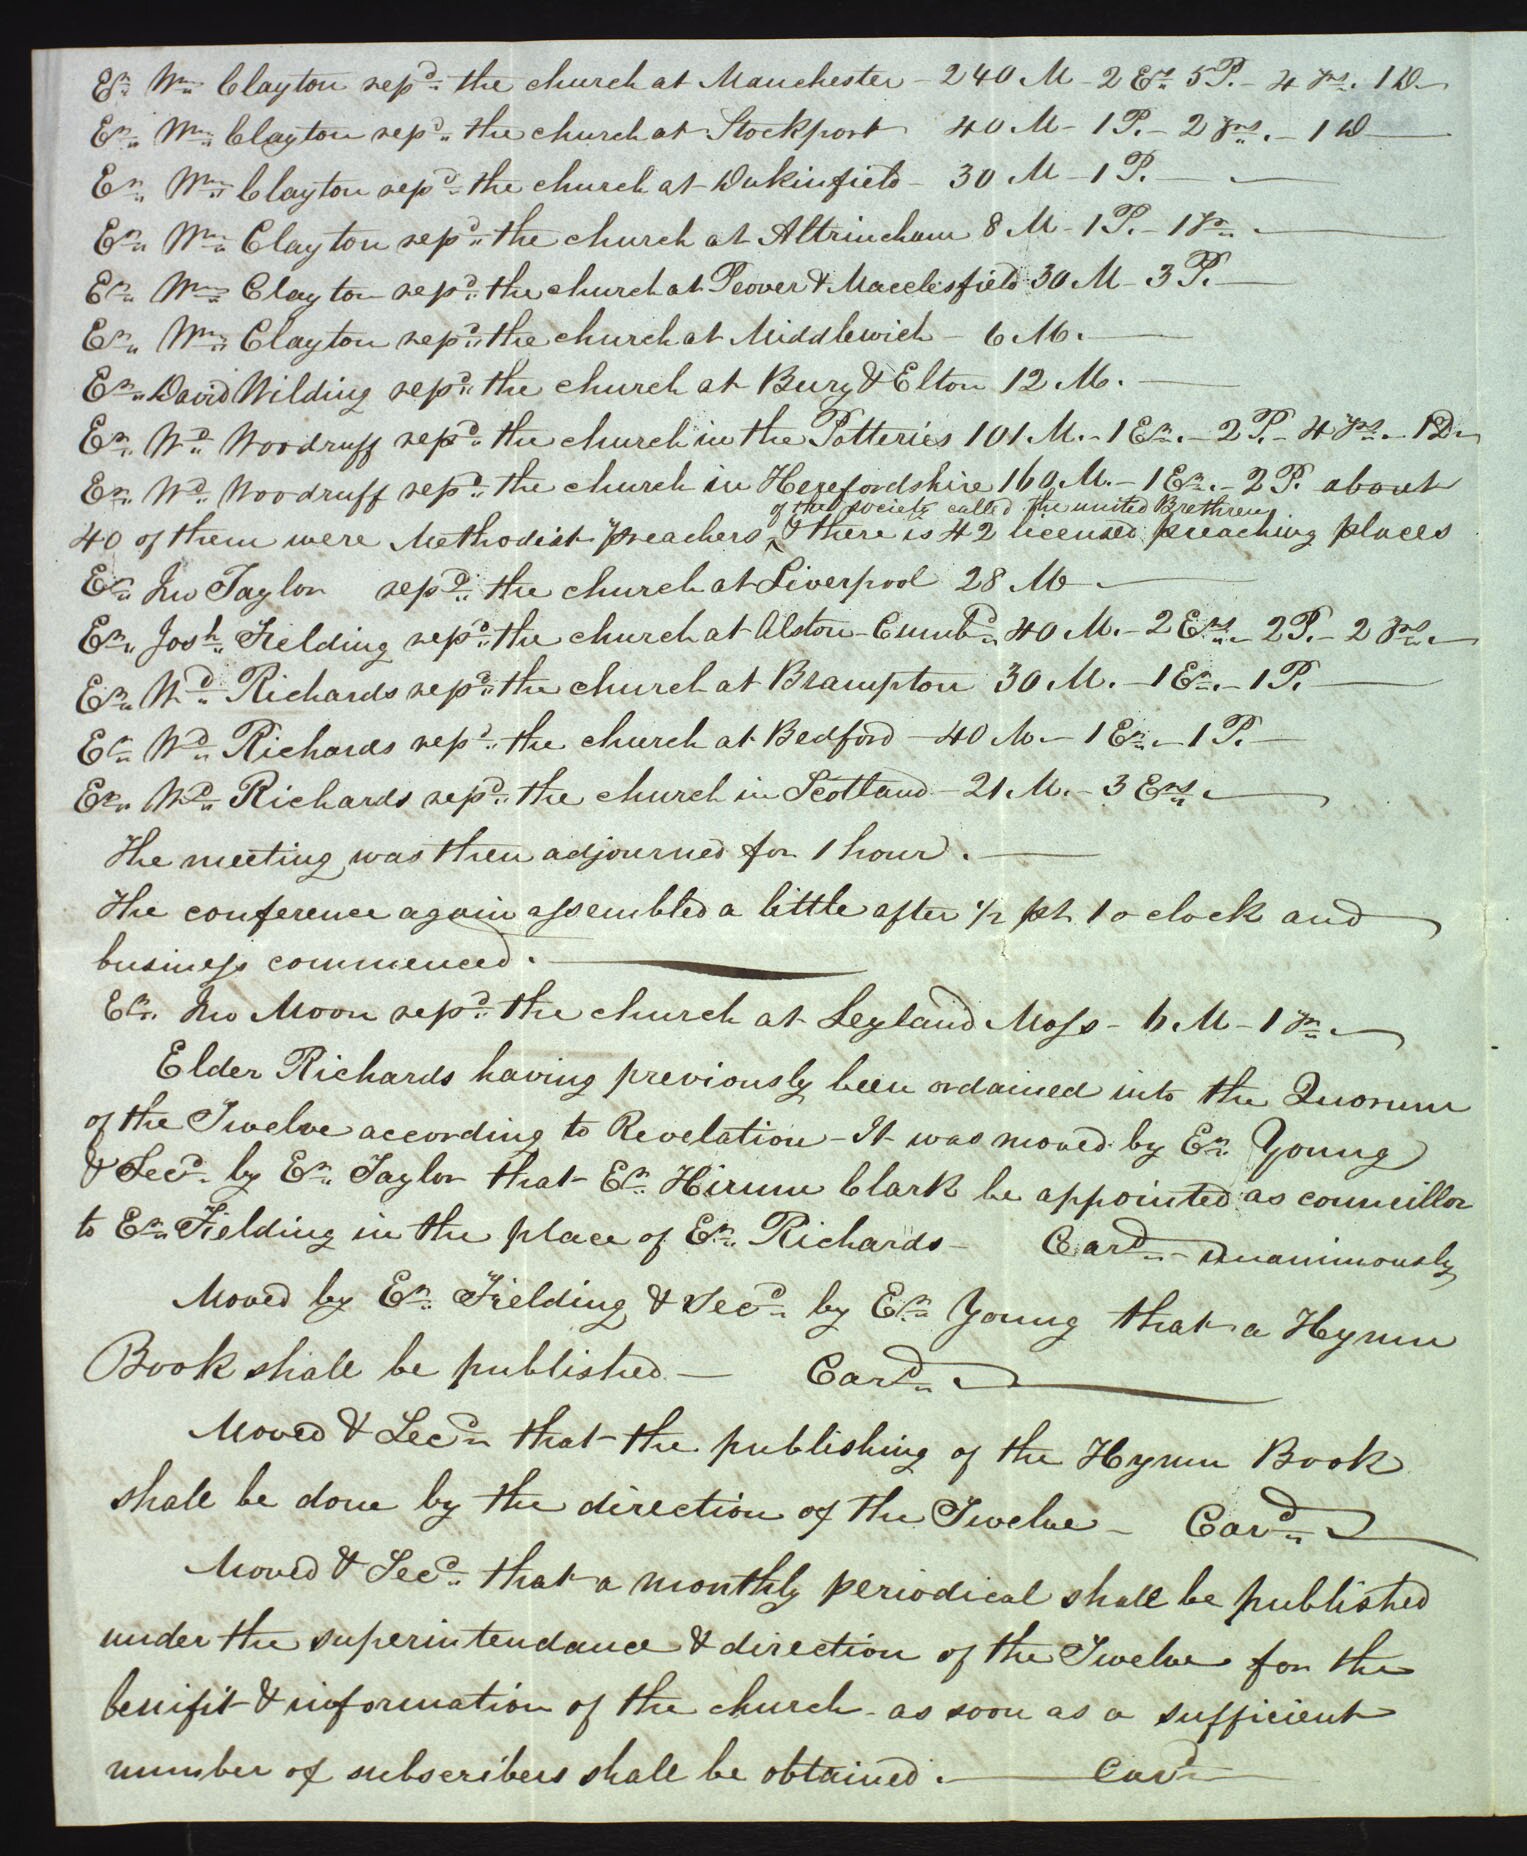 Er. Wm. Clayton repd. the church at Manchester – 240 M – 2 Es. 5 P. – 4 Trs. 1 D –
Er. Wm. Clayton repd. the church at Stockport 40 M – 1 P. – 2 Trs. – 1 D —
Er. Wm. Clayton repd. the church at Dukinfield – 30 M – 1 P. —
Er. Wm. Clayton repd. the church at Altrincham 8 M – 1 P. – 1 Tr. —
Er. Wm. Clayton repd. the church at Peover & Macclesfield 30 M – 3 P. —
Er. Wm. Clayton repd. the church at Middlewich – 6 M. —
Er. David Wilding repd. the church at Bury & Elton 12 M. —
Er. Wd. Woodruff repd. the church in the Potteries 101 M. – 1 Er. – 2 P. – 4 Trs. – 1 D –
Er. Wd. Woodruff repd. the church in Herefordshire 160 M. – 1 Er. – 2 P. about
of the society called the united Brethren
40 of them were Methodist preachers ^ & there is 42 licensed preaching places
Er. Jno Taylor repd. the church at Liverpool 28 M —
Er. Josh. Fielding repd. the church at Alston – Cumbd. 40 M. – 2 Ers. – 2 P. – 2 Trs. –
Er. Wd. Richards repd. the church at Brampton 30 M. – 1 Er. – 1 P. —
Er. Wd. Richards repd. the church at Bedford – 40 M – 1 Er. – 1 P. —
Er. Wd. Richards repd. the church in Scotland – 21 M. – 3 Ers. —
The meeting was then adjourned for 1 hour. —
The conference again assembled a little after ½ pt. 1 o clock and
business commenced. —
Er. Jno Moon repd. the church at Leyland Moss – 6 M – 1 Tr. —
Elder Richards having previously been ordained into the Quorum
of the Twelve according to Revelation – It was moved by Er. Young
& Secd. by Er. Taylor that Er. Hirum Clark be appointed as councillor
to Er. Fielding in the place of Er. Richards – Card. – Unanimously
Moved by Er. Fielding & Secd. by Er. Young that a Hymn
Book shall be published – Card. —
Moved & Secd. that the publishing of the Hymn Book
shall be done by the direction of the Twelve – Card. —
Moved & Secd. that a monthly periodical shall be published
under the superintendance & direction of the Twelve for the
benifit & information of the church – as soon as a sufficient
number of subscribers shall be obtained. — Card. —